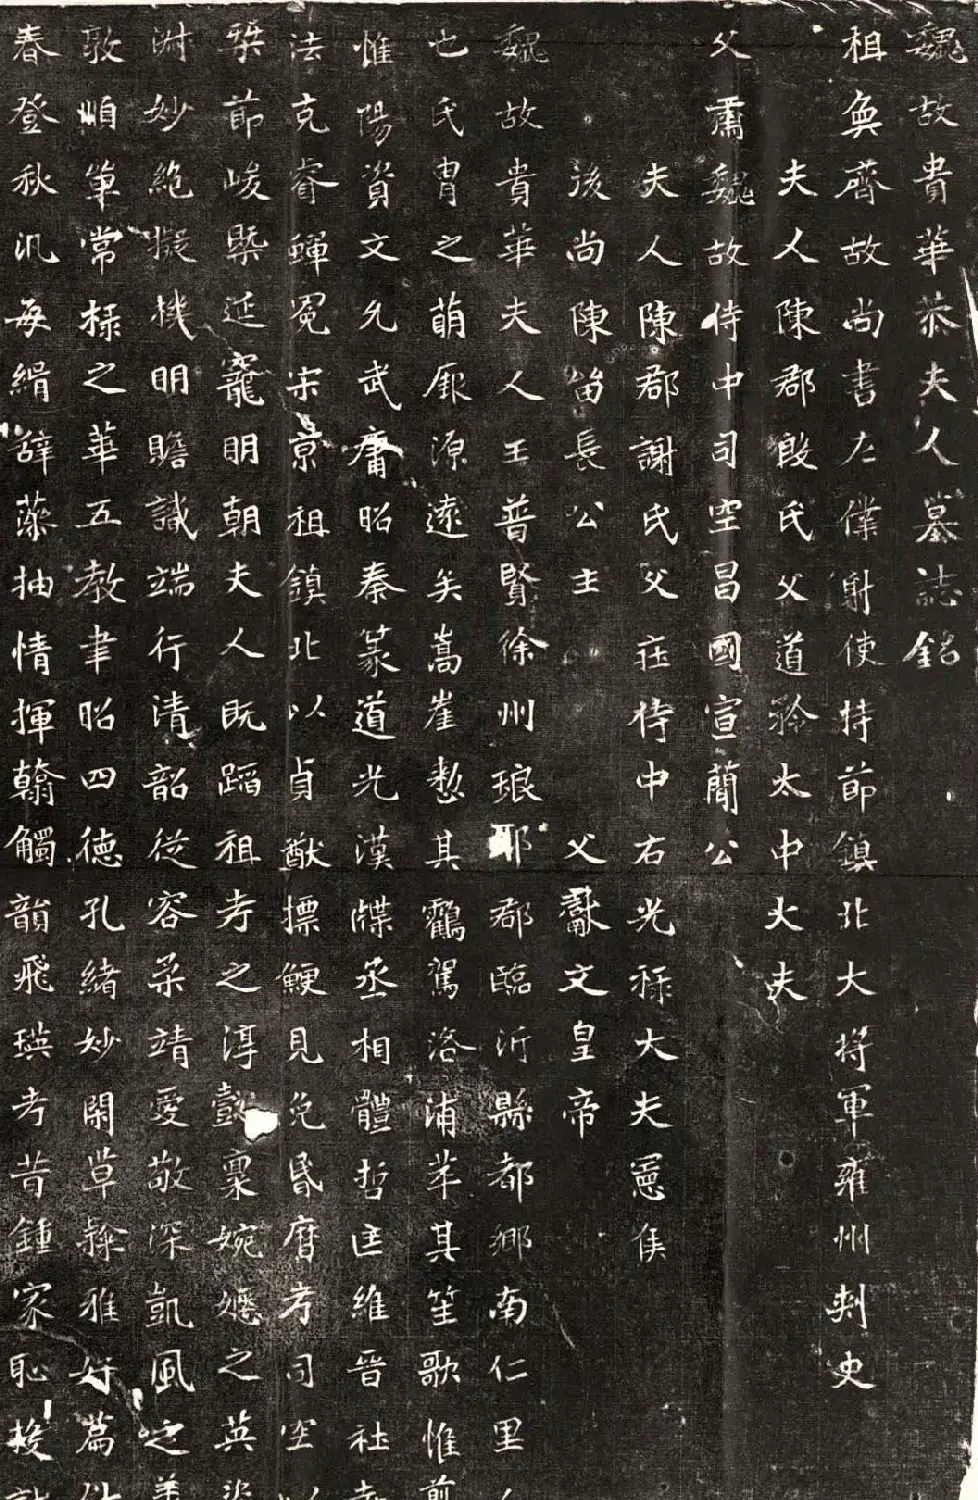 魏故貴華恭夫人墓誌銘
祖奐齊故尚書左僕射使持節鎮北大將軍雍州刾史
夫人陳郡殷氏父道矜太中大夫
父肅魏故侍中司空昌國宣蕳公
夫人陳郡謝氏父莊侍中右光祿大夫憲侯
後尚陳留長公主 父獻文皇帝
魏故貴華夫人王普賢徐州琅耶郡臨沂縣都鄉南仁里
也氏胄之萌厥源遠矣嵩崖慸其鸖駕洛浦萃其笙歌惟
惟陽資文允武庸昭秦篆道光漢牒丞相體哲匡維晉社
法克睿蟬冕宋京祖鎮北以貞猷摽鯁見免昏曆考司空以
槩節峻槩延寵明朝夫人既蹈祖考之淳懿稟婉嫕之英
淵妙絶擬機明贍識端行清韶從容柔靖愛敬深凱風之
敦順單常棣之華五教聿昭四德孔緒妙閑草隸雅好篇
春登秋汎每緝辭藻抽情揮翰觸韻飛瑛考昔鍾家恥